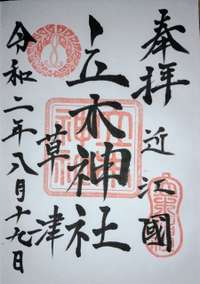 奉拝
近江國
立木神社
草津
令和二年八月十九日